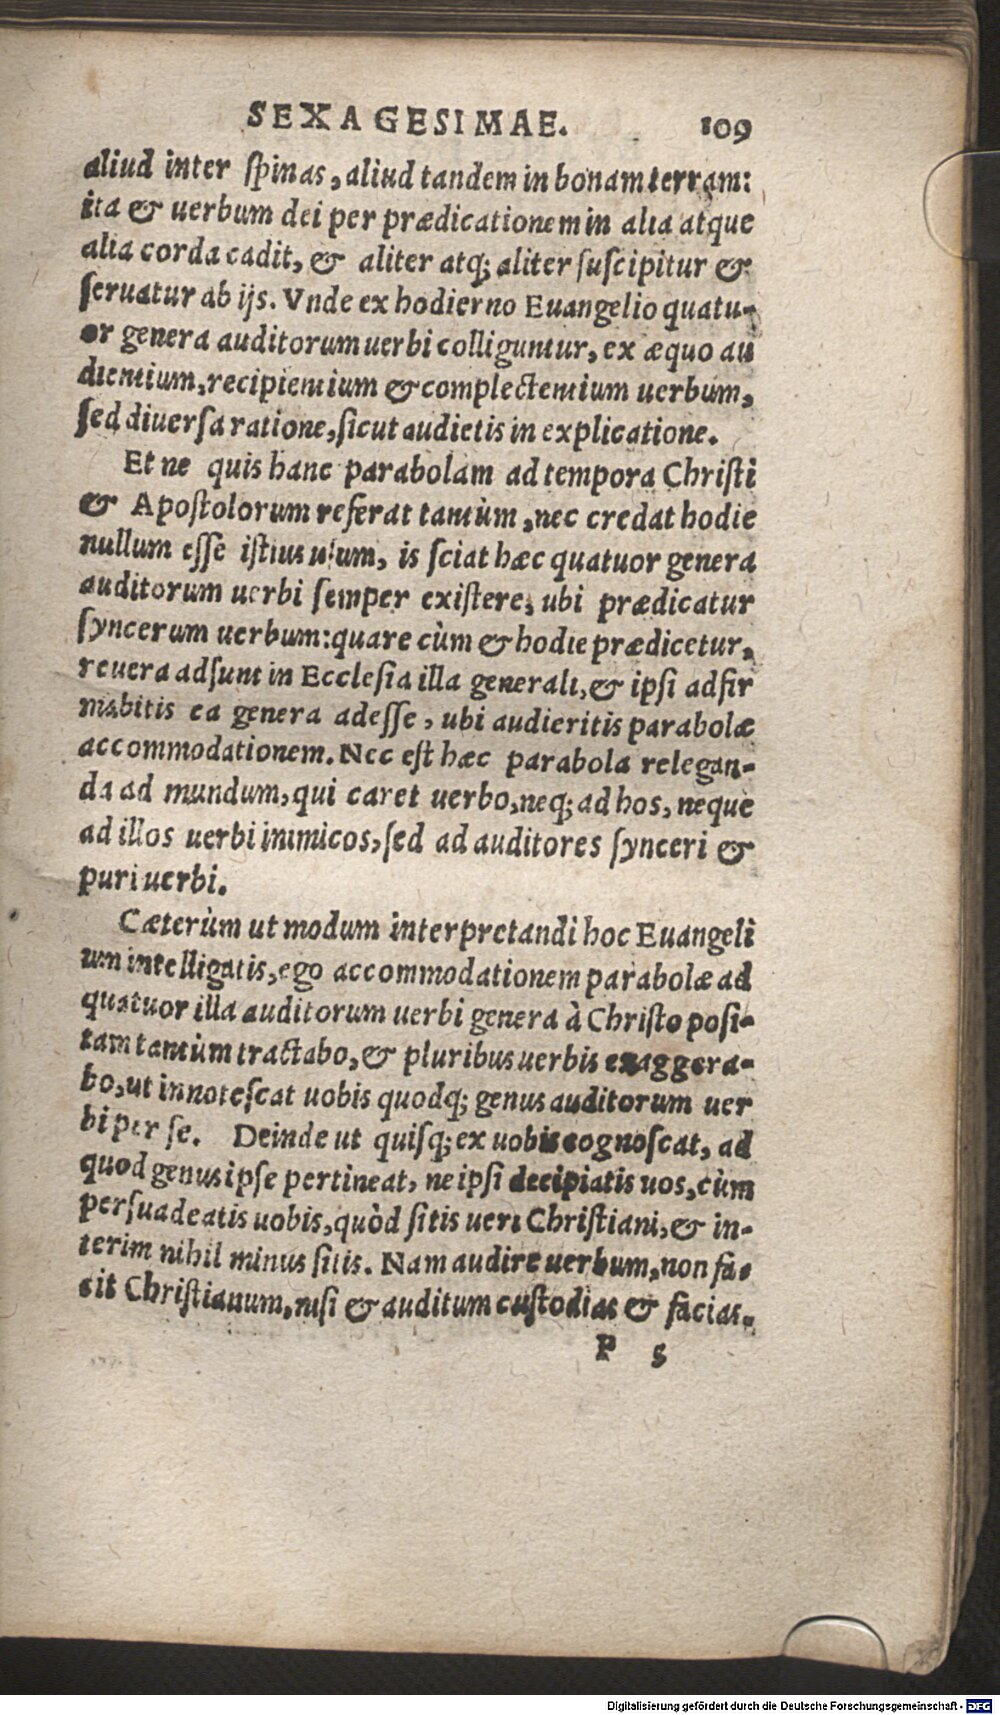 SEXAGESIMAE. 109
aliud inter ſpinas, aliud tandem in bonam terram:
ita & uerbum dei per prædicationem in alia atque
alia corda cadit, & aliter atq; aliter ſuſcipitur &
ſeruatur ab ijs. Vnde ex hodierno Euangelio quatu-
or genera auditorum uerbi colliguntur, ex æquo au
dientium, recipientium & complectentium uerbum,
ſed diuerſa ratione, ſicut audietis in explicatione.
Et ne quis hanc parabolam ad tempora Chriſti
& Apoſtolorum referat tantùm, nec credat hodie
nullum eſſe iſtius uſum, is ſciat hæc quatuor genera
auditorum uerbi ſemper exiſtere, ubi prædicatur
ſyncerum uerbum: quare cùm & hodie prædicetur,
reuera adſunt in Eccleſia illa generali, & ipſi adfir
mabitis ea genera adeſſe, ubi audieritis parabolæ
accommodationem. Nec eſt hæc parabola relegan-
da ad mundum, qui caret uerbo, neq; ad hos, neque
ad illos uerbi inimicos, ſed ad auditores ſynceri &
puri uerbi.
Cæterùm ut modum interpretandi hoc Euangeli
um intelligatis, ego accommodationem parabolæ ad
quatuor illa auditorum uerbi genera à Chriſto poſi-
tam tantùm tractabo, & pluribus uerbis exaggera-
bo, ut innoteſcat uobis quodq; genus auditorum uer
bi per ſe. Deinde ut quiſq; ex uobis cognoſcat, ad
quod genus ipſe pertineat, ne ipſi decipiatis uos, cùm
perſuadeatis uobis, quòd ſitis ueri Chriſtiani, & in-
terim nihil minus ſitis. Nam audire uerbum, non fa-
cit Chriſtianum, niſi & auditum cuſtodias & facias.
P s
Digitalisierung gefördert durch die Deutsche Forschungsgemeinschaft - DFG